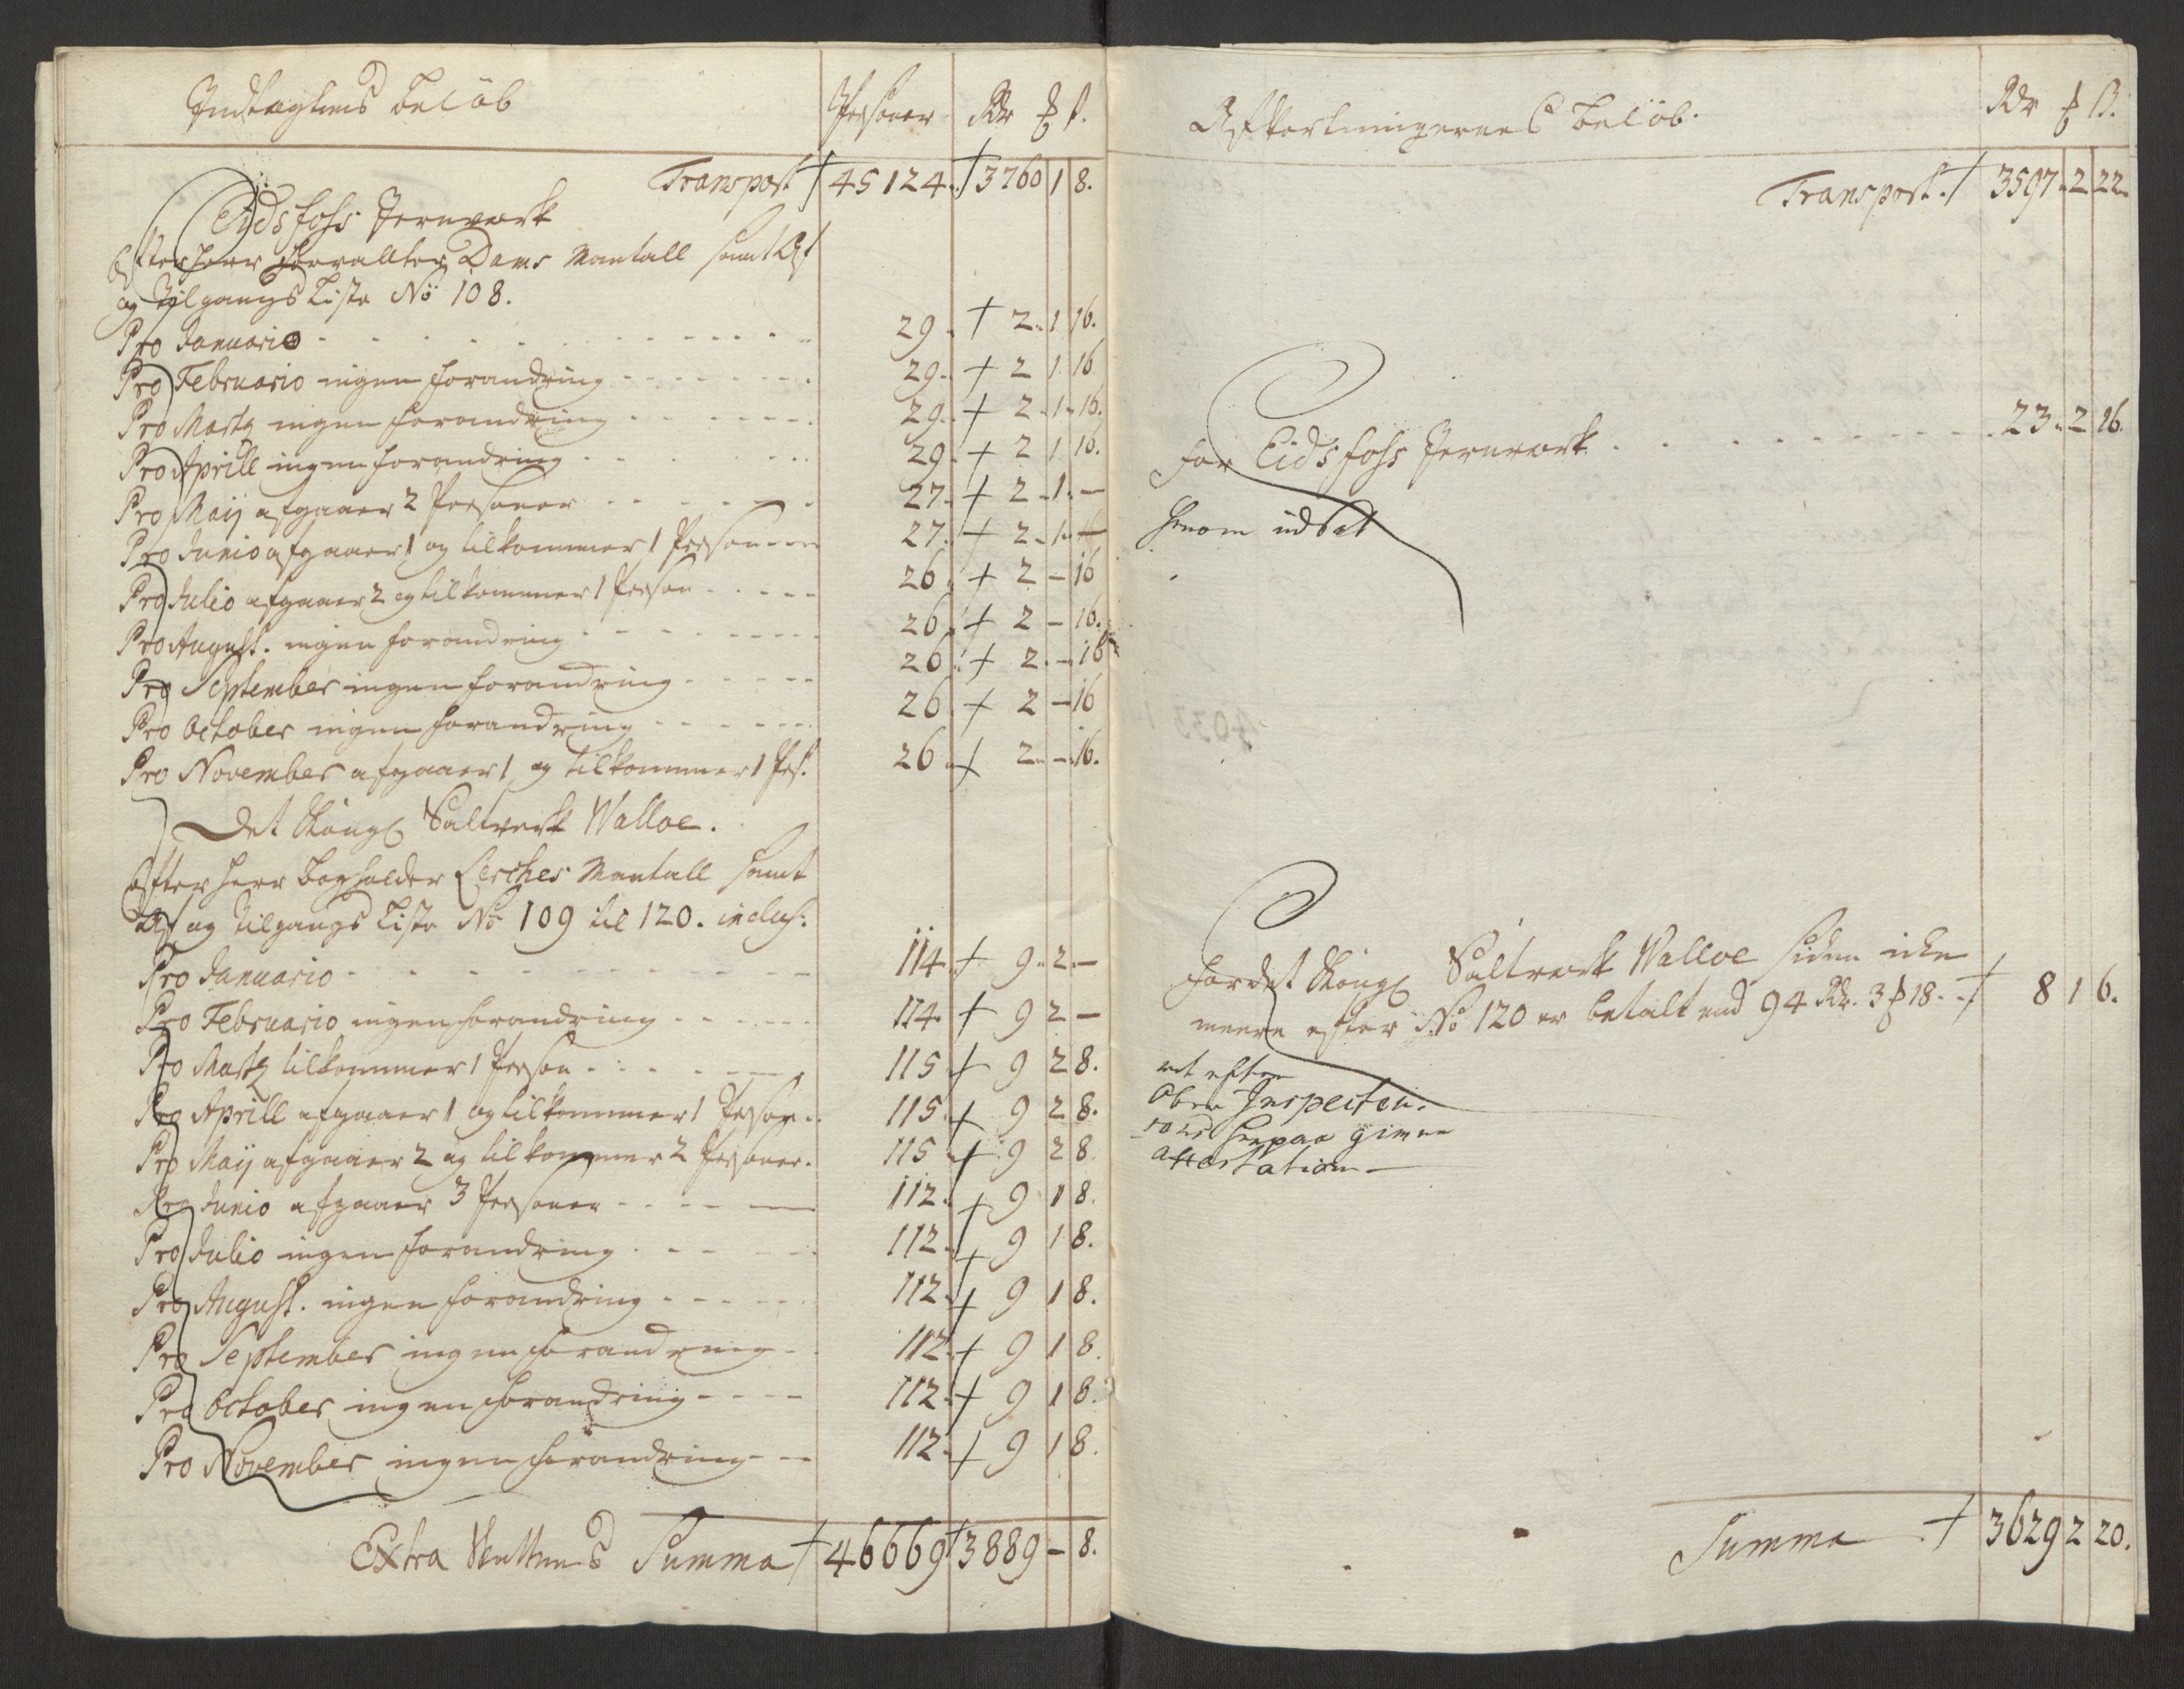 Indtægtens Beløb Persohner Rdr ƺ s.
Transport + 45124. + 3760 1 8.
Eidsfoss Jernverk
Efter Herr Forvalter Dams Mantall samt Af
og Tilgangs Liste No 108.
Pro Januario - - - 29. + 2. 1 16.
Pro Februario ingen forandring - - - 29. + 2 1 16
Pro Martz ingen forandring - - - 29. + 2. 1. 16.
Pro Aprill ingen forandring - - - 29. + 2 1 16.
Pro Maij afgaaer 2 Persohner - - - 27. + 2. 1. —
Pro Junio afgaaer 1 og tilkommer 1 Persohn - - - 27. + 2. 1. —
Pro Julio afgaaer 2 og tilkommer 1 Persohn - - - 26. + 2 — 16
Pro August. ingen forandring - - - 26. + 2 — 16.
Pro September ingen forandring - - - 26. + 2. — 16
Pro October ingen forandring - - - 26. + 2 — 16
Pro November afgaaer 1 og tilkommer 1 Pers. 26. + 2. — 16.
Det Kongl Saltverk Walloe.
Efter Herr Bogholder Lerches Mantall samt
Af og Tilgangs Liste No 109 til 120. inclus:
Pro Januario - - - 114. + 9. 2. —
Pro Februario ingen forandring - - - 114. + 9 2 —
Pro Martz tilkommer 1 Persohn - - - 115. + 9 2 8.
Pro Aprill afgaaer 1 og tilkommer 1 Persohn. 115. + 9 2 8.
Pro Maij afgaaer 2 og tilkommer 2 Persohner. 115. + 9 2 8.
Pro Junio afgaaer 3 Persohner - - - 112. + 9 1 8.
Pro Julio ingen forandring - - - 112. + 9 1 8.
Pro August. ingen forandring - - - 112. + 9 1 8.
Pro September ingen forandring - 112. + 9 1 8.
Pro October ingen forandring - - - 112. + 9 1 8.
Pro November ingen forandring - - 112. + 9 1 8.
Extra Skattens Summa + 46669 + 3889 — 8.
Afkortningernes Beløb. Rdr ƺ s.
Transport. + 3597. 2 22.
For Eidsfoss Jernverk - - - 23. 2 16.
herom udsat
For det Kongl Saltverk Walloe siden icke
meere efter No 120 er betalt end 94 Rdr. 3 ƺ 18. + 8 1 6.
ret efter
Ober Inspecteu-
herpaa given
attestation —
Summa + 3629 2 20.